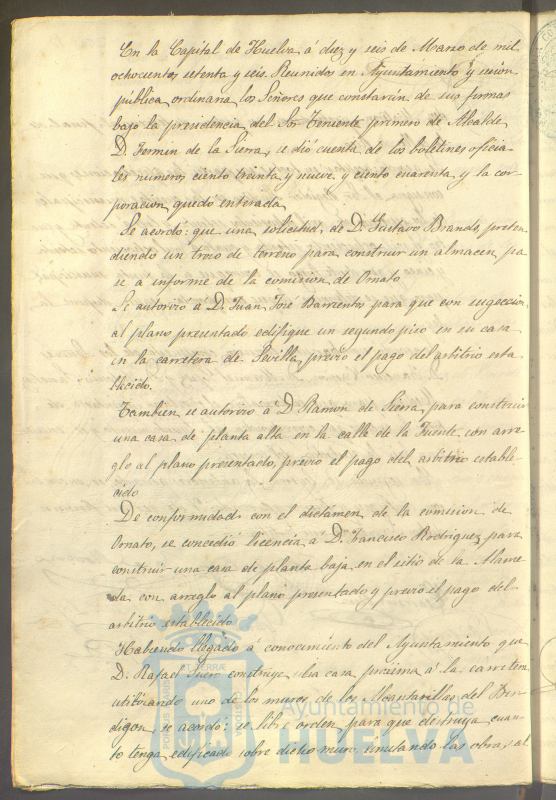 En la Capital de Huelva á diez y seis de Marzo de mil
ochocientos setenta y seis. Reunidos en Ayuntamiento y sesion
pública ordinaria los Señores que constarán de sus firmas
bajo la presidencia del Sor. Teniente primero de Alcalde,
D. Fermin de la Sierra, se dió cuenta de los boletines oficia-
les números ciento treinta y nueve y ciento cuarenta, y la cor-
poracion quedó enterada
Se acordó: que una solicitud, de D. Gustavo Brandt, preten-
diendo un trozo de terreno para construir un almacen, pa-
se á informe de la comision de Ornato
Se autorizó á D. Juan José Barrientos para que con sugeccion
al plano presentado edifique un segundo piso en su casa
en la carretera de Sevilla, previo el pago del arbitrio esta-
blecido.
Tambien se autorizó á D Ramon de Sierra, para construir
una casa de planta alta en la calle de la Fuente con arre-
glo al plano presentado, previo el pago del arbitrio estable-
cido
De conformidad con el dictamen de la comision de
Ornato, se concedió licencia á D. Francisco Rodriguez para
construir una casa de planta baja en el sitio de la Alame-
da con arreglo al plano presentado y previo el pago del
arbitrio establecido
Habiendo llegado á conocimiento del Ayuntamiento que
D. Rafael construye una casa próxima á la carretera
utilizando uno de los muros de las Alcantarillas del
se acordó: se libre orden para que destruya cuan-
to tenga edificado sobre dicho muro, las obras al
Ayuntamiento de
HUELVA